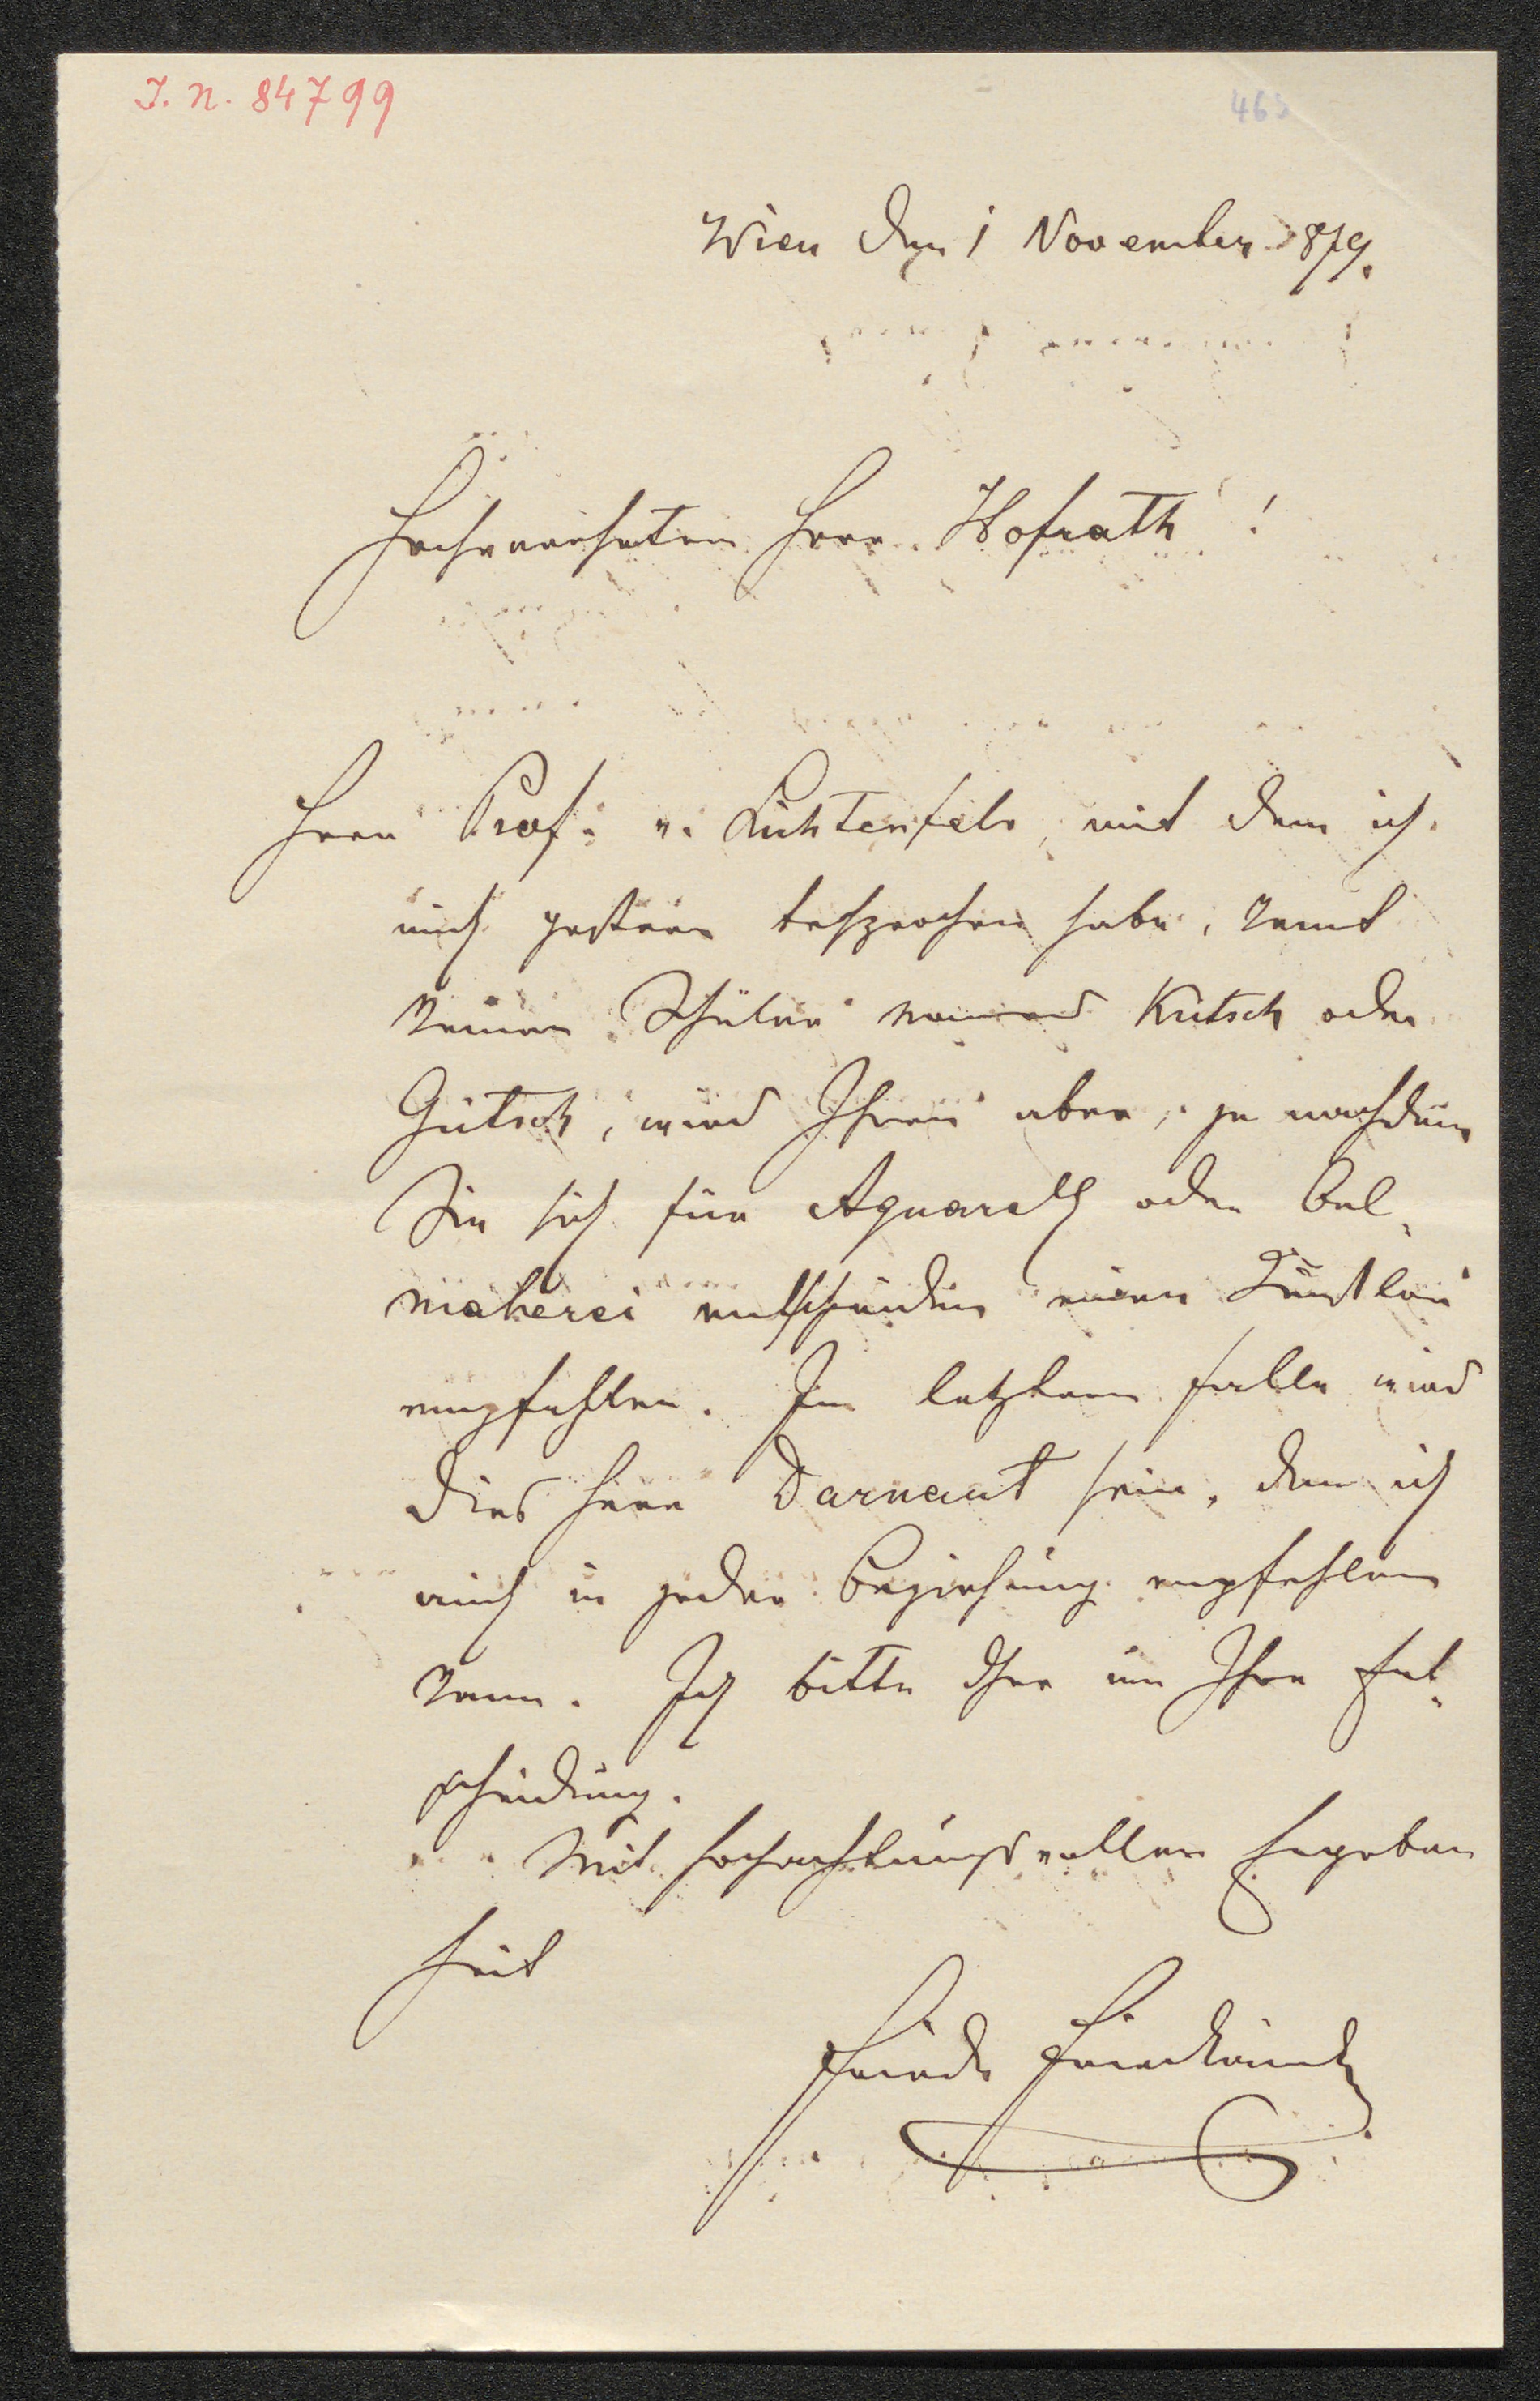 J. N. 84799
465
Wien den 1 November 879.
Hochverehrtern Herr Hofrath !
Herr Prof. v. Lichtenfels, mit dem ich
mich gestern besprochen habe, kennt
keinen Schüler namens Kutsch oder
Gutsch, wird Ihnen aber, je nachdem
Sie sich für Aquarell oder Oel-
mahlerei entscheiden einen Künstler
empfehlen. Im letztern Falle wird
dies Herr Darnaut sein, den ich
auch in jeder Beziehung empfehlen
kann. Ich bitte Sie um Ihre Ent-
scheidung.
Mit hochachtungsvoller Ergeben
heit
Friedr Friedländer